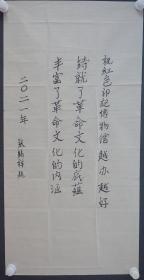 祝红色印记博物馆越办越好
铸就了革命文化的底蕴
丰富了革命文化的内涵
二〇二一年